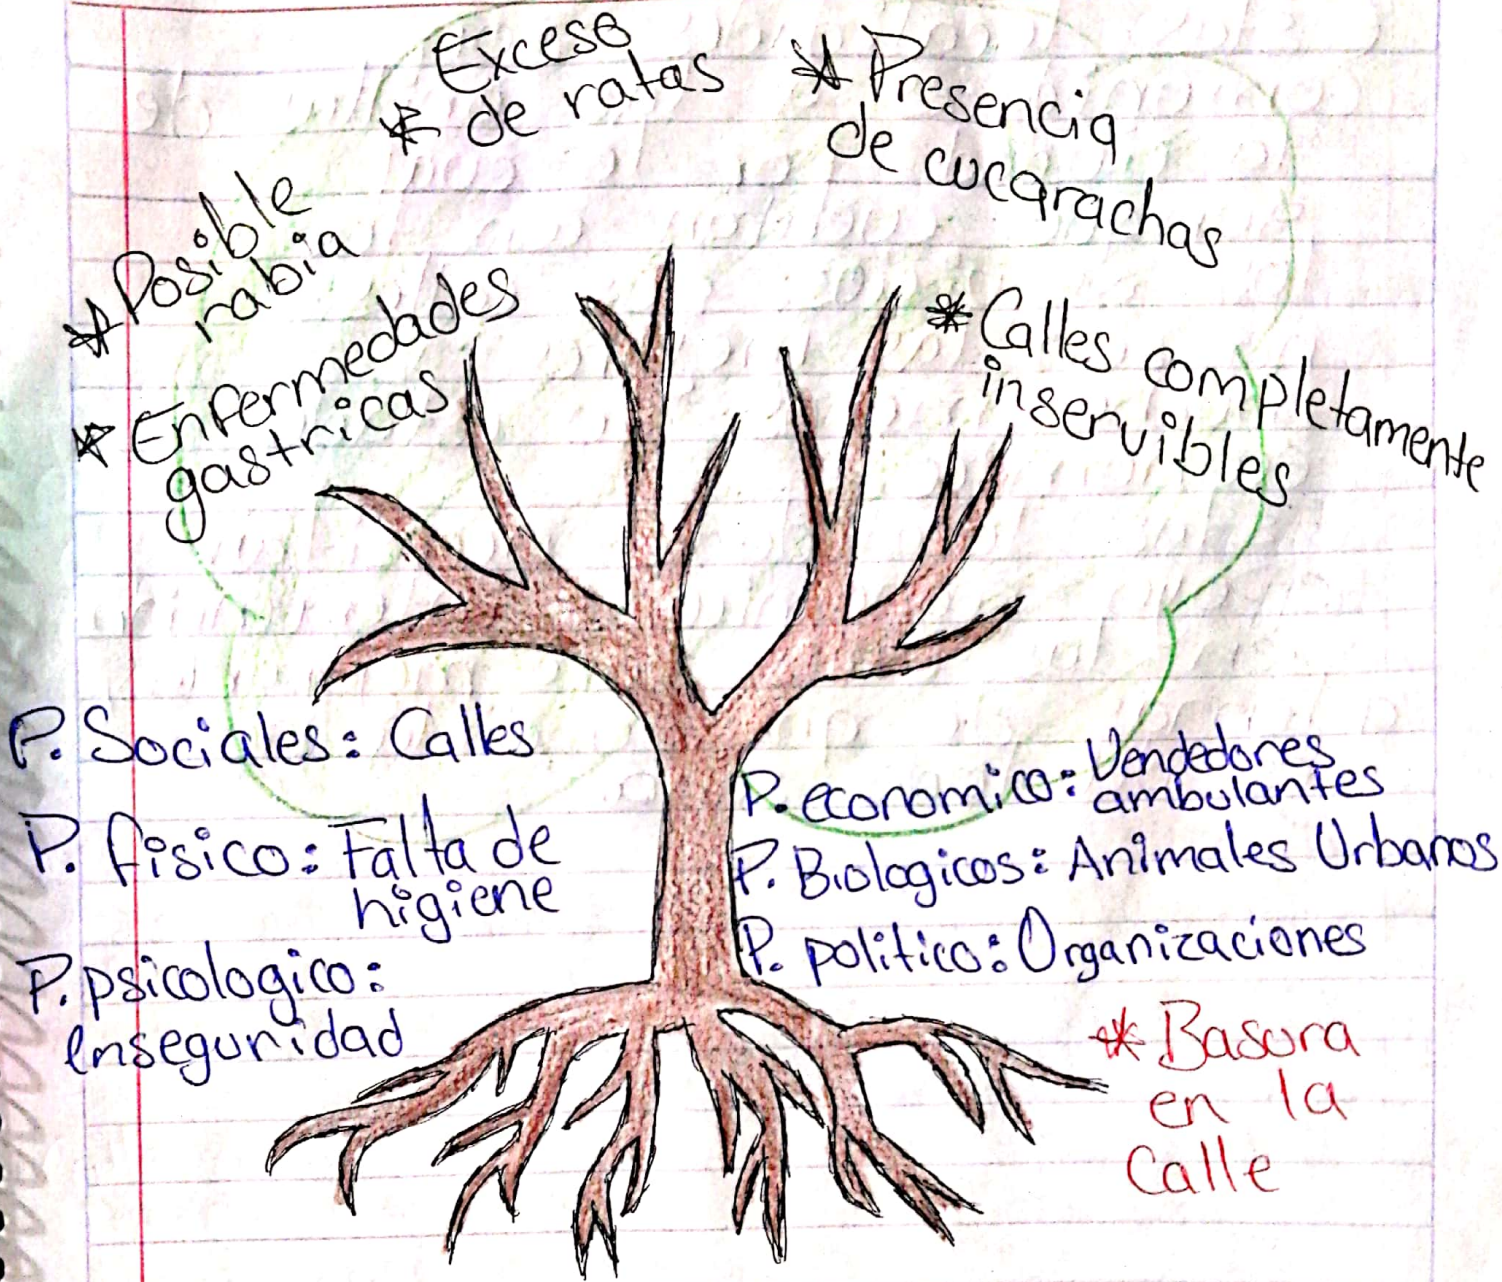 Exceso
* de ratas
* Presencia
de cucarachas
* Posible
rabia
* Enfermedades
gastricas
* Calles completamente
inservibles
P. Sociales: Calles
P. fisico: Falta de
higiene
P. psicologico:
enseguridad
P. economico: Vendedores
ambulantes
P. Biologicos: Animales Urbanos
P. politico: Organizaciones
* Basura
en la
Calle